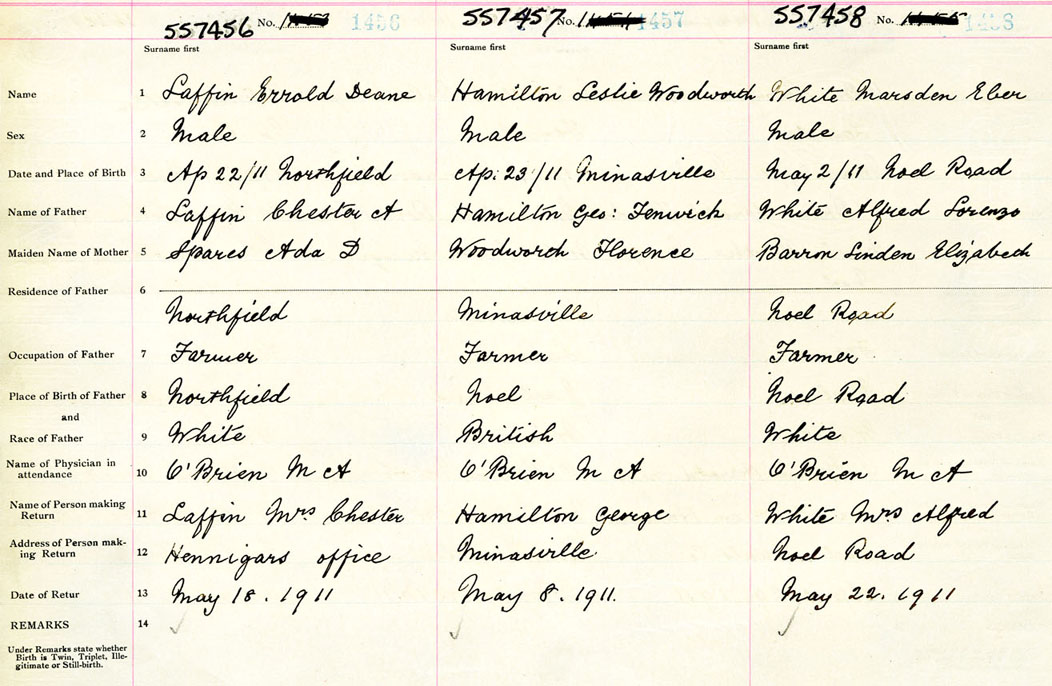 557456 No. 1456 557457 No. 1457 557458 No. 1458
Surname first Surname first Surname first
Name 1 Laffin Errold Deane Hamilton Leslie Woodworth White Marsden Eber
Sex 2 Male Male Male
Date and Place of Birth 3 Ap 22/11 Northfield Ap: 23/11 Minasville May 2/11 Noel Road
Name of Father 4 Laffin Chester A Hamilton Geo: Fenwich White Alfred Lorenzo
Maiden Name of Mother 5 Spares Ada D Woodworth Florence Barron Linden Elizabeth
Residence of Father 6
Northfield Minasville Noel Road
Occupation of Father 7 Farmer Farmer Farmer
Place of Birth of Father 8 Northfield Noel Noel Road
and
Race of Father 9 White British White
Name of Physician in
attendance 10 O'Brien M A O'Brien M A O'Brien M A
Name of Person making
Return 11 Laffin Mrs Chester Hamilton George White Mrs Alfred
Address of Person mak-
ing Return 12 Hennigars office Minasville Noel Road
Date of Retur 13 May 18. 1911 May 8. 1911. May 22. 1911
REMARKS 14
Under Remarks state whether
Birth is Twin, Triplet, Ille-
gitimate or Still-birth.